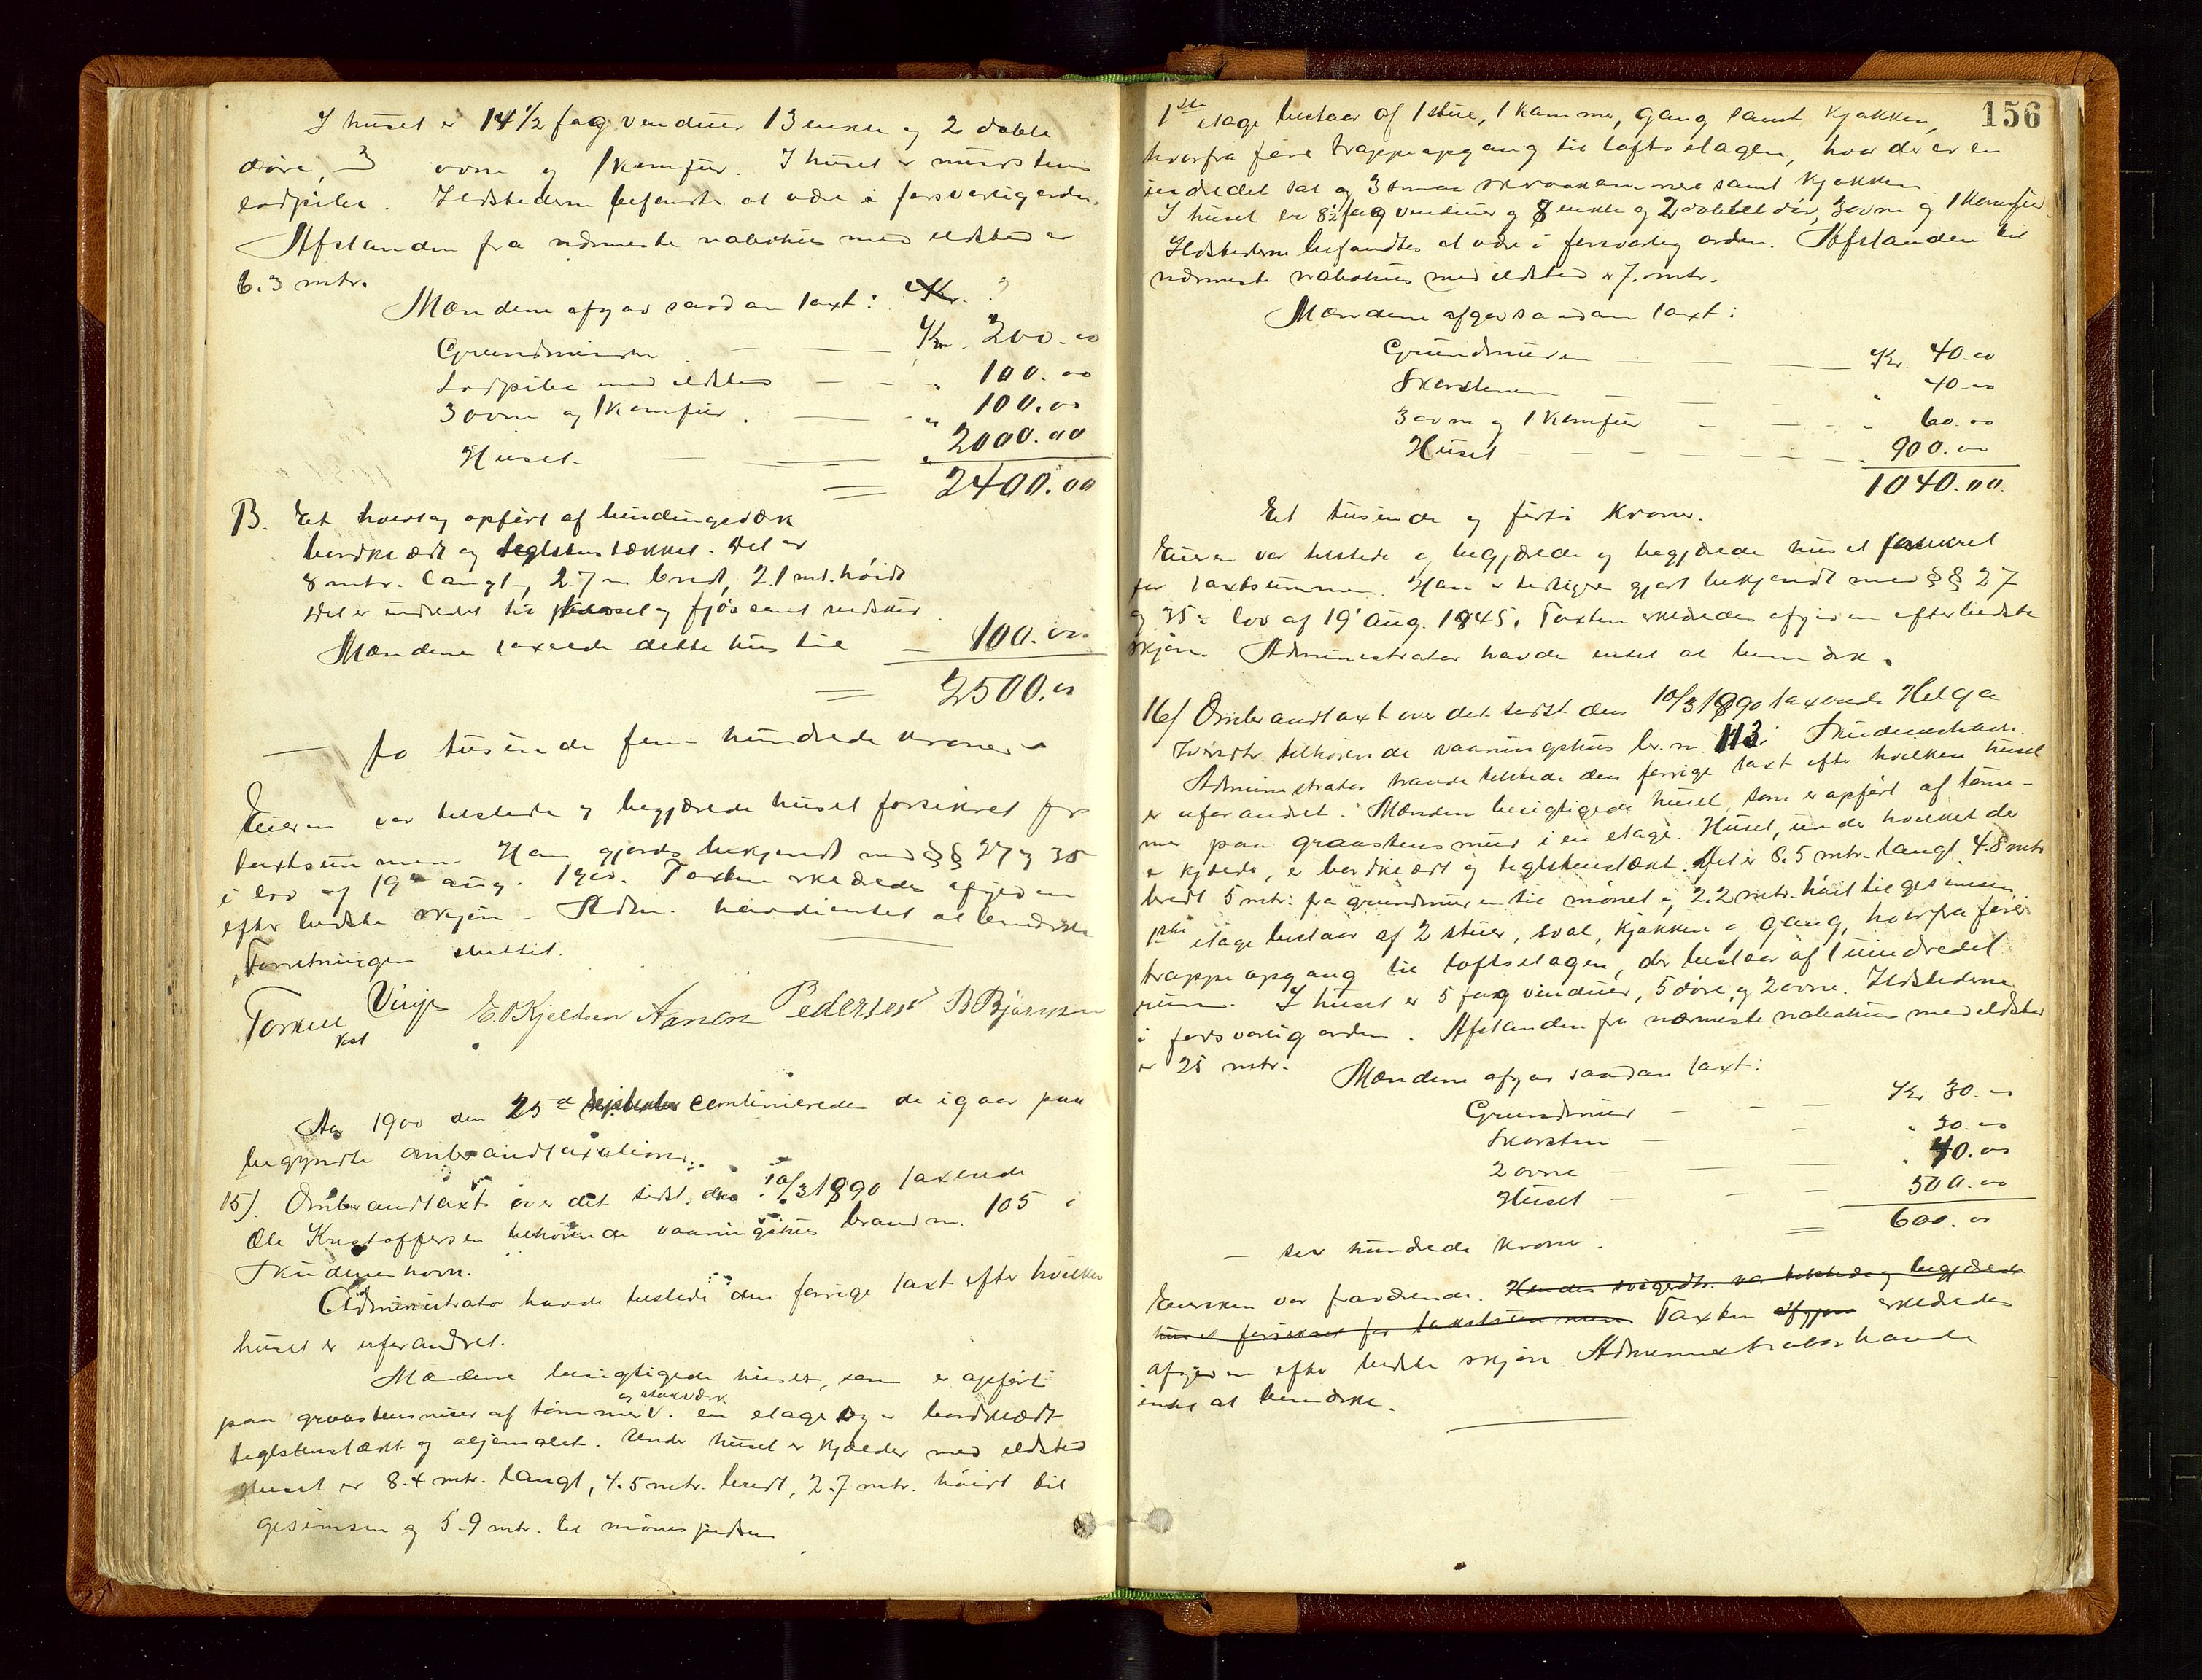 I huset er 14 1/2 fag vinduer 13 enkle og 2 doble
døre, 3 ovne og 1 komfur. I huset er murstens
ildpibe. Ildstederne befandtes at være i forsvarlig orden.
Afstanden fra nærmeste nabohus med ildsted er
6.3 mtr.
Mændene afgav saadan taxt:
Grundmuren — — Kr. 200.00
Lodpibe med ildsted — - „ 100.00
3 ovne og 1 komfur. — - „ 100.00
Huset — — „ 2000.00
= 2400.00
B. Et huus opført af bindingsværk
bordklædt og teglstenstækket. Det er
8 mtr. langt, 2.7 m bredt, 2.1 mt. høidt
Det er indredet til og fjøs samt vedskur
Mændene taxerede dette hus til — 100.00
= 2500.00
— to tusinde fem hundrede kroner —
Eieren var tilstede og begjærede huset forsikret for
taxtsummen. Han gjordes bekjendt med §§ 27 og 35
i lov af 19de aug. 1900. Taxten erklæredes afgiven
efter bedste skjøn - Adm. havde intet at bemærke
Forretningen sluttet.
Torkell Vinje E. O Kjeldsen Aanon Pedersen B Bjørnsen
kst
Aar 1900 den 25de september continueredes de igaar paa
begyndte ombrandtaxationer.
15). Ombrandtaxt over det sidst den 10/3 1890 taxerede
Ole Kristoffersen tilhørende vaaningshus brand nr. 105 i
Skudeneshavn.
Administrator havde tilstede den forrige taxt efter hvilken
huset er uforandret.
Mændene besigtigede huset, som er opført
og stavværk
paa graastensmur af tømmer V. en etage og er bordklædt
teglstenstækt og oljemalet. Under huset er kjælder med ildsted
Huset er 8.4 mtr. langt, 4.5 mtr. bredt, 2.7 mtr. høidt til
gesimsen og 5.9 mtr. til mønespidsen
156
1ste etage bestaar af 1 stue, 1 kammer, gang samt kjøkken,
hvorfra fører trappeopgang til loftsetagen, hvor der er en
indredet sal og 3 smaa skraakammere samt kjøkken.
I huset er 8 1/2 fag vinduer og 8 enkle og 2 dobbelt dør, 3 ovne og 1 komfur.
Ildstederne befandtes at være i forsvarlig orden. Afstanden til
nærmeste nabohus med ildsted er 7. mtr.
Mændene afgav saadan taxt:
Grundmuren — — — Kr. 40.00
Skorstenen — — „ 40.00
3 ovne og 1 komfur - — - „ 60.00
Huset - - - - - - 900.00
1040.00.
Et tusinde og førti kroner.
Eieren var tilstede og begjærede og begjærede huset forsikret
for taxtsummen. Han er tidligere gjort bekjendt med §§ 27
og 35 i lov af 19' aug. 1845. Taxten erklæredes afgiven efter bedste
skjøn. Administrator havde intet at bemærke.
16/ Ombrandtaxt over det sidst den 10/3 1890 taxerede Helga
Iversdtr. tilhørende vaaningshus br. nr. 113 i Skudeneshavn.
Administrator havde tilstede den forrige taxt efter hvilken huset
er uforandret. Mændene besigtigede huset, som er opført af tøm-
mer paa graastensmur i en etage. Huset, under hvilket der
er kjælder, er bordklædt og teglstenstækt. Det er 8.5 mtr. langt 4.8 mtr
bredt 5 mtr. fra grundmuren til mønet og 2.2 mtr. høit til gesimsen
1ste etage bestaar af 2 stuer, sval, kjøkken og gang, hvorfra fører
trappeopgang til loftsetagen, der bestaar af 1 uindredet
rum. I huset er 5 fag vinduer, 5 døre, og 2 ovne. Ildstederne
i forsvarlig orden. Afstanden fra nærmeste nabohus med ildsted
er 25 mtr.
Mændene afgav saadan taxt:
Grundmur — — — Kr. 30.00
Skorsten — - „ 30.00
2 ovne — — — „ 40.00
Huset — - — 500.00
= 600.00
— sex hundrede kroner.
Eiersken var fraværende. Hendes svigerdtr. var tilstede og begjærede
huset forsikret for taxtsummen Taxten afgiven erklæredes
afgiven efter bedste skjøn. Administrator havde
intet at bemærke.